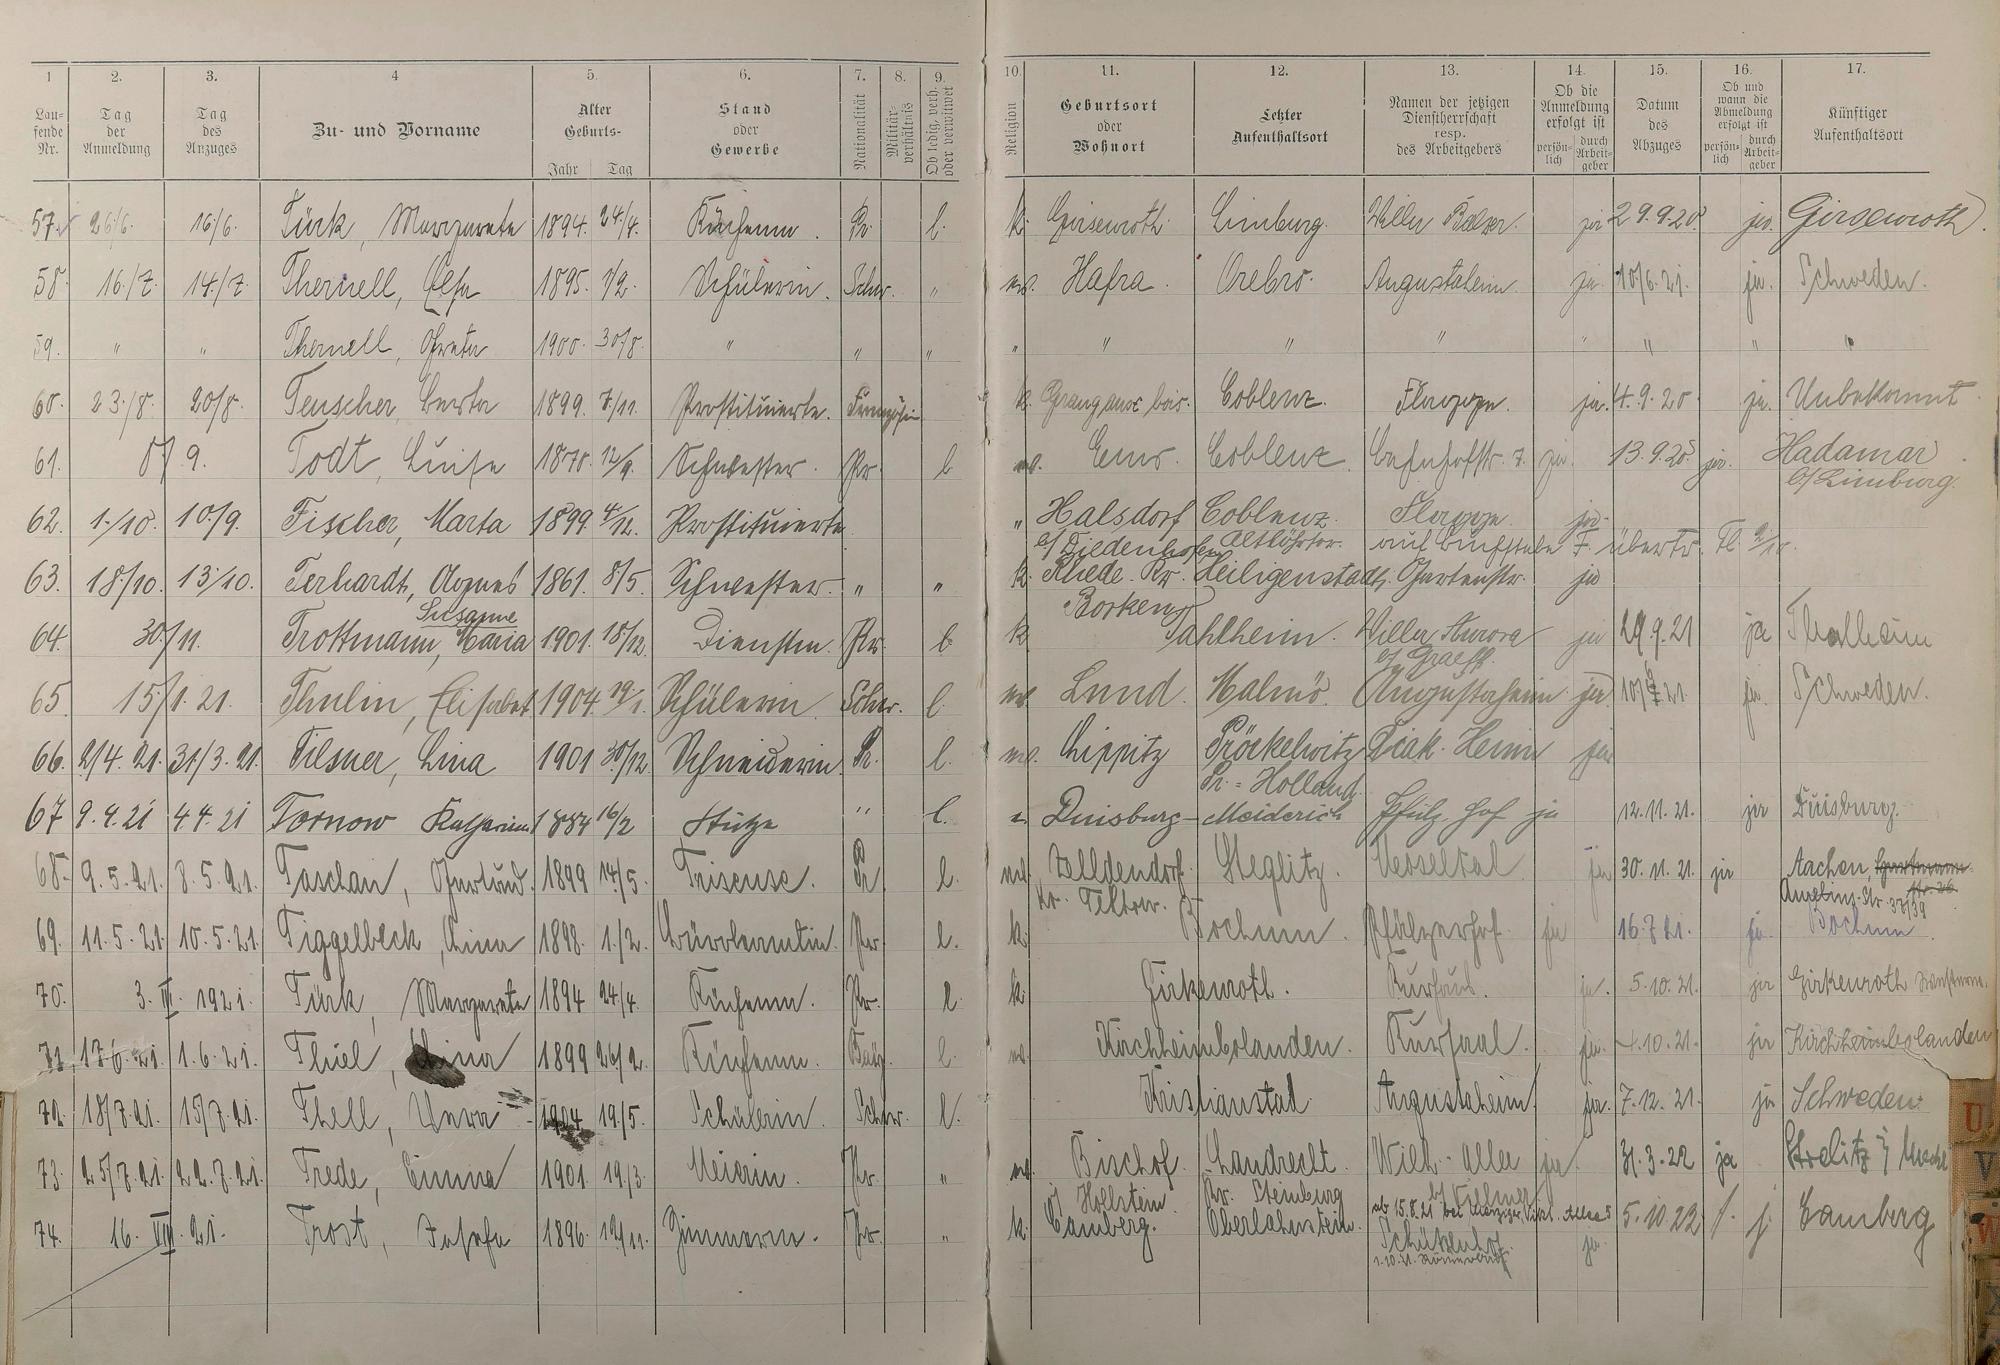 1 2. 3. 4 5. 6. 7. 8. 9. 10. 11. 12. 13. 14. 15. 16. 17.
Lau- fende Nr. Tag der Anmeldung Tag des Anzuges Zu- und Vorname Alter Geburts- Jahr Tag Stand oder Gewerbe Nationalität Militär- verhältnis Ob ledig, verh. oder verwitwet Religion Geburtsort oder Wohnort Letzter Aufenthaltsort Namen der jetzigen Dienstherrschaft resp. des Arbeitgebers Ob die Anmeldung erfolgt ist persön- lich durch Arbeit- geber Datum des Abzuges Ob und wann die Abmeldung erfolgt ist persön- lich durch Arbeit- geber Künftiger Aufenthaltsort
57. 26/6. 16/6. Türk, Margarete 1894. 24./4. Küchenm. Pr. l. k. Girsenroth Limburg. Villa Balzer. ja 29.9.20. ja. Girsenroth.
58. 16./7. 14./7. Thernell, Elsa 1895. 7/2. Schülerin. Schw. " Hafra. Orebro. Augustaheim. ja. 10/6.21. ja. Schweden.
59. " " Thernell, Greta 1900. 30/8. " " " " " " " " " " "
60. 23./8. 20/8. Teuscher, Berta 1899. 7./11. Prostituierte. k. Coblenz. Flagge. ja. 4.9.20 ja. Unbekannt.
61. 8/9. Todt, Luise 1870. 12/9. Schwester. Pr. l. Ems. Coblenz. Bahnhofstr. 7. ja. 13.9.20. ja. Hadamar
b/Limburg.
62. 1./10. 10./9. Fischer, Marta 1899 4/12. Prostituierte " Halsdorf Coblenz. Flagge. ja.
b/Diedenhofen Altlöhrtor. auf Buchstabe F. übertr. Fl. 2/10.
63. 18./10. 13./10. Terhardt, Agnes 1861. 8/5. Schwester. " " k. Rhede. Pr. Heiligenstadt. Gartenstr. ja
Susanne Borken
64. 30./11. Trottmann, Maria 1901. 18/12. Dienstm. Pr. l. k. Dahlheim. Villa Aurora ja 29.9.21 ja Thalheim
b/ Graeff.
65. 15/1.21. Thulin, Elisabet 1904. 19/1. Schülerin. Schw. l. Lund. Malmö. Augustaheim. ja 10/6 21. ja. Schweden.
66. 2/4.21. 31/3.21. Tilsner, Lina 1901 30/12. Schneiderin. Pr. l. Lippitz Pröckelwitz Diak. Heim ja
Pr.=Holland.
67 9.4.21 4 4.21 Tornow Katharina 1884 16/2 Stütze " l. Duisburg- Meiderich Pfälz. Hof ja 12.11.21. ja Duisburg.
68. 9.5.21. 8.5.21. Taschan, Gertrud. 1899 14/5. Friseuse. Pr l. Zelldendorf. Steglitz. Nerseltal ja 30.11.21. ja Aachen,
Kr. Teltow. 37/39
69. 11.5.21. 10.5.21. Tiggelbeck, Lina 1898. 1./2. Bürobeamtin. Pr. l. k. Bochum. Pfälzerhof. ja 16.7.21. ja. Bochum
70. 3. VI. 1921. Türk, Margarete 1894 24/4. Küchenm. Pr. l. k. Girkenroth. Kurhaus. ja. 5.10.21. ja Girkenroth
71. 17.6.21. 1.6.21. Thiel, Lina 1899 26/2. Küchenm. l. Kirchheimbolanden. Kursaal. ja. 4.10.21. ja Kirchheimbolanden
72. 18/7.21. 15/7.21. Thell, Vera 1904 19/5. Schülerin. Schw. l. Kristianstad Augustaheim. ja. 7.12.21. ja Schweden.
73. 25/7.21. 22.7.21. Trede, Emma 1901. 19/3. Meierin. Pr. " Bischof. Landrecht. Wilh.-Allee ja. 31.3.22 ja Strelitz i/ Meckl
i/ Hollstein. Kr. Steinburg b/ Villmer
74. 16. VIII. 21. Trost, Josefa 1896. 12/11. Zimmerm. Pr. " k. Camberg. Oberlahnstein. ab 15.8.21 bei Allee 5 5.10.22 j. Camberg
Schützenhof. ja.
1.10.21. Römerbad.